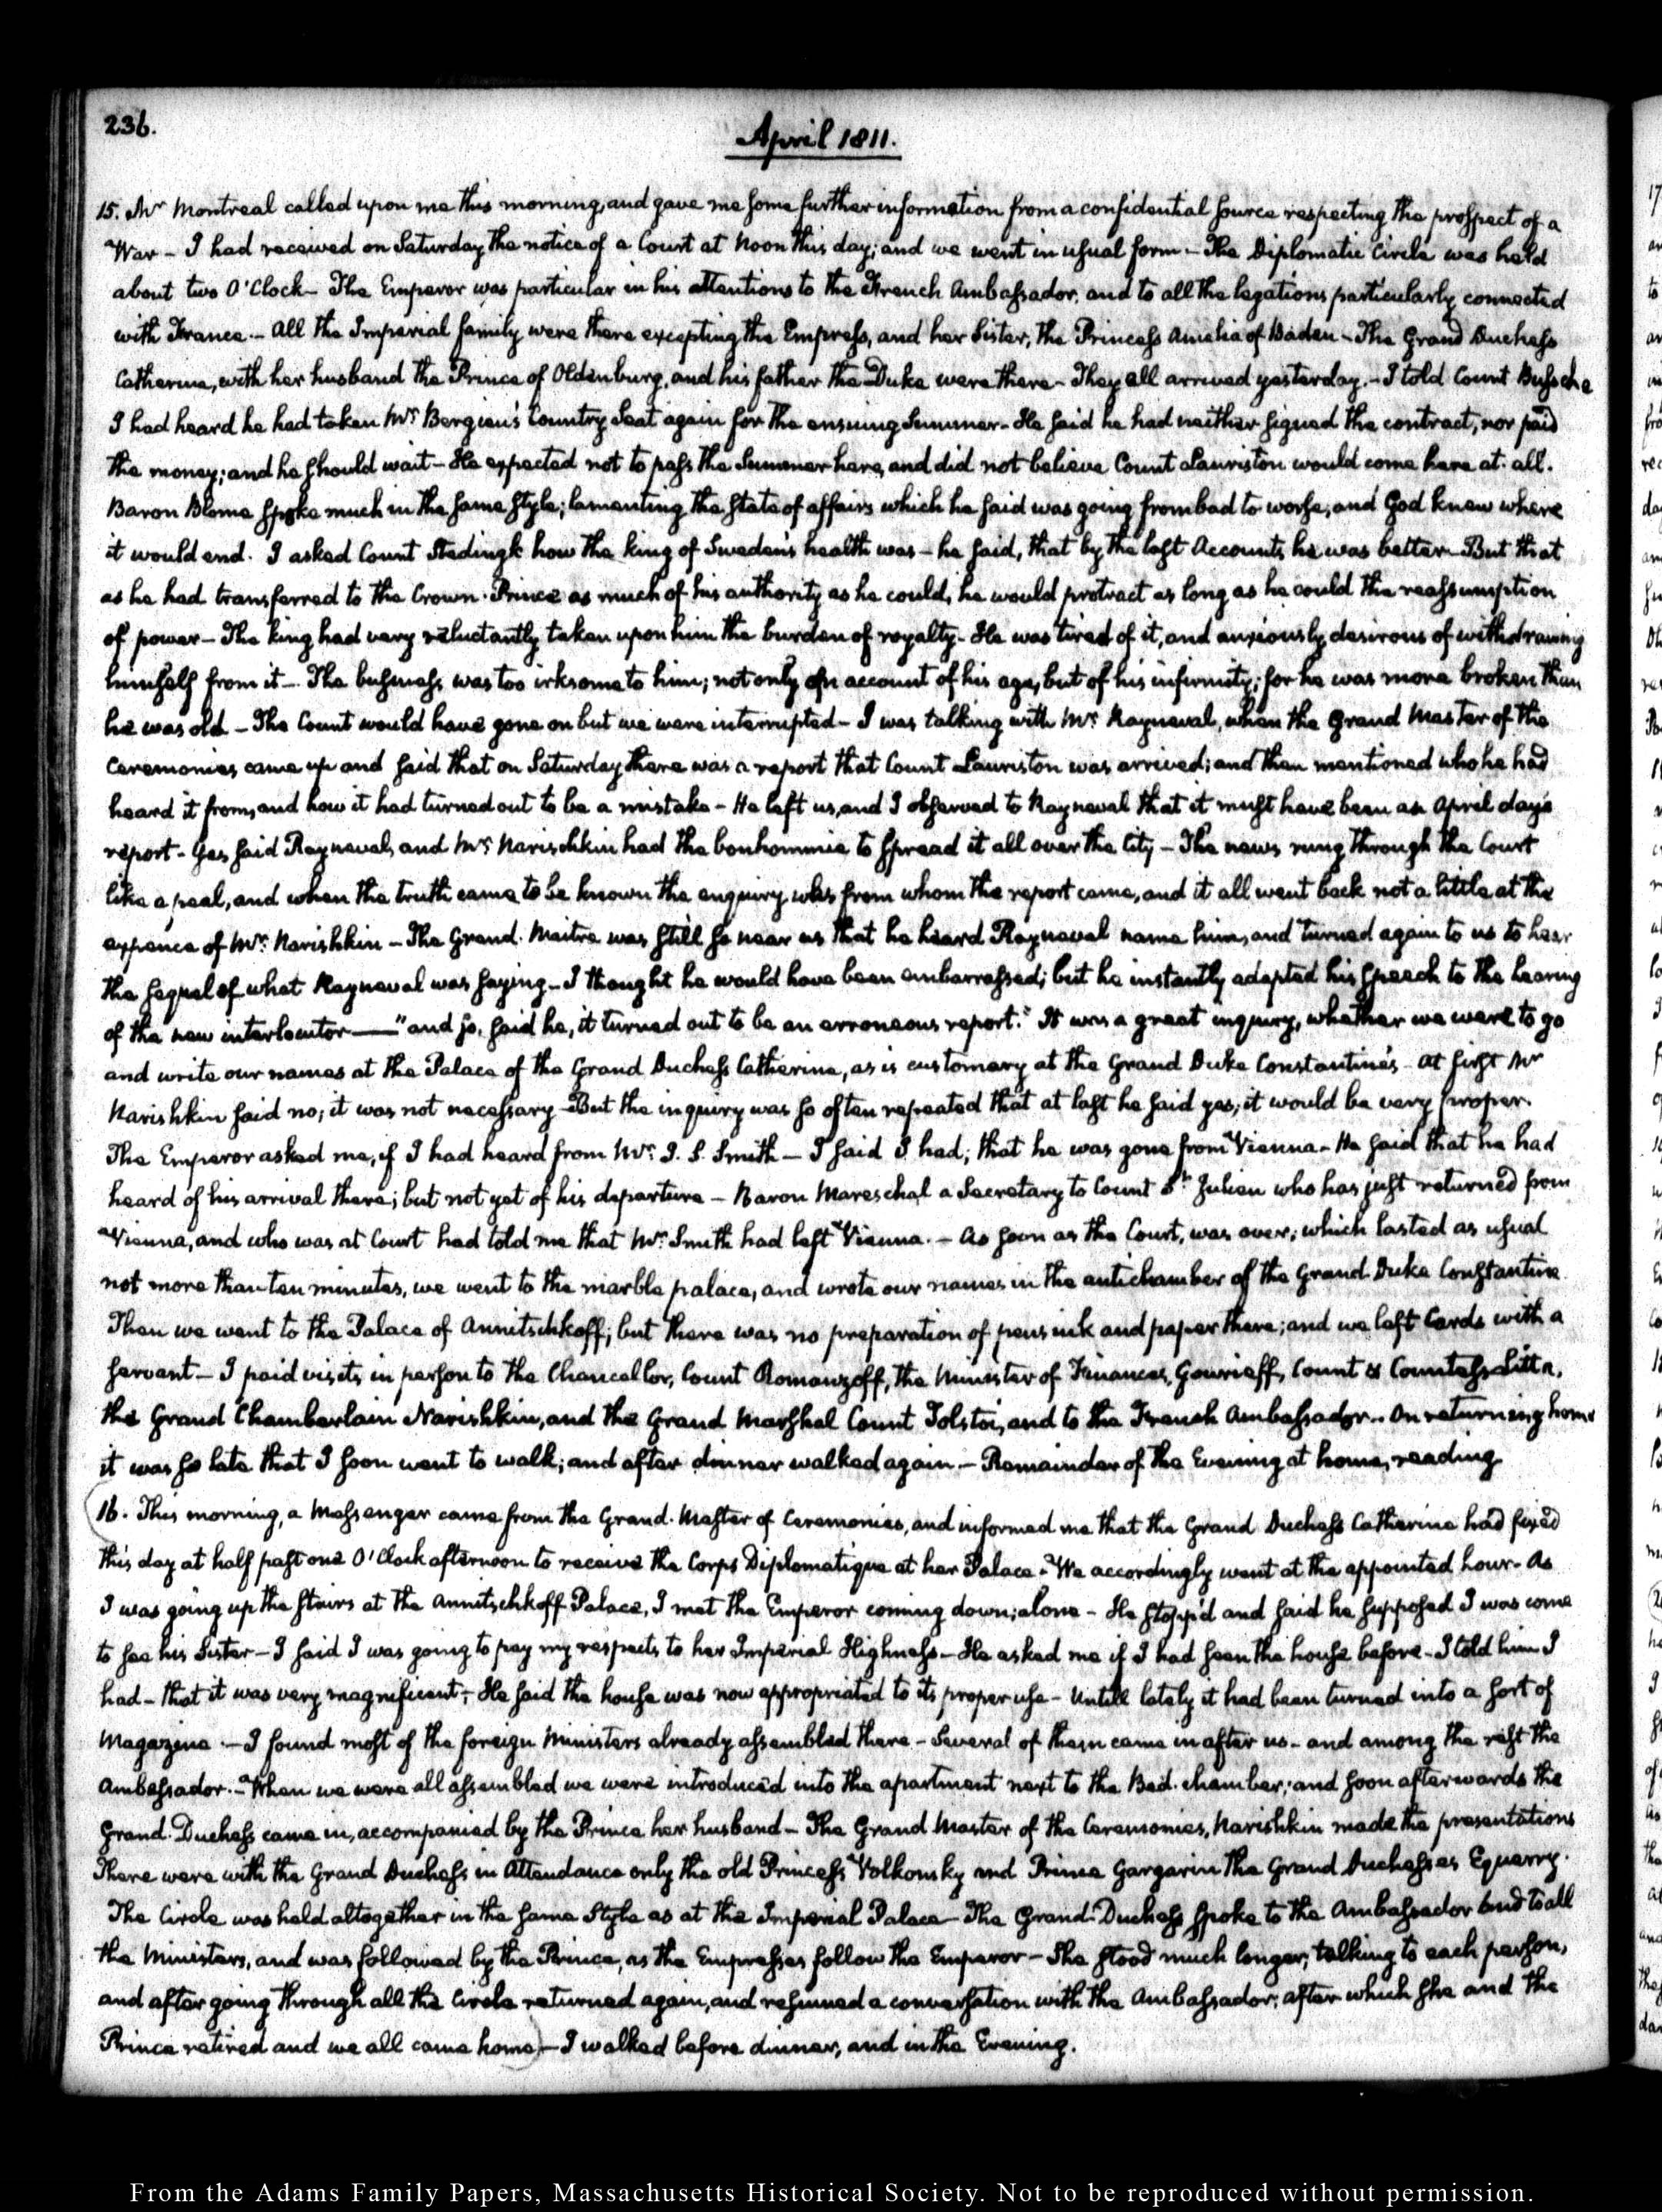 236.
April 1811.
15. Mr Montreal called upon me this morning, and gave me some further information from a confidential source respecting the prospect of a
War – I had received on Saturday the notice of a Court at Noon this day; and we went in usual form – The Diplomatic Circle was held
about two O'Clock – The Emperor was particular in his attentions to the French Ambassador, and to all the legations particularly connected
with France. – All the Imperial family were there excepting the Empress, and her Sister, the Princess Amelia of Baden – The Grand Duchess
Catherine, with her husband the Prince of Oldenburg, and his father the Duke were there – They all arrived yesterday. – I told Count Bussche
I had heard he had taken Mr. Bergien's Country Seat again for the ensuing Summer – He said he had neither signed the contract, nor paid
the money; and he should wait – He expected not to pass the Summer here, and did not believe Count Lauriston would come here at all.
Baron Blome spoke much in the same style; lamenting the state of affairs which he said was going from bad to worse, and God knew where
it would end. I asked Count Stedingk how the king of Sweden's health was – he said, that by the last Accounts he was better – But that
as he had transferred to the Crown-Prince as much of his authority as he could, he would protract as long as he could the reassumption
of power – The king had very reluctantly taken upon him the burden of royalty – He was tired of it, and anxiously desirous of withdrawing
himself from it – The business was too irksome to him; not only on account of his age, but of his infirmity; for he was more broken than
he was old – The Count would have gone on but we were interrupted – I was talking with Mr. Rayneval, when the Grand Master of the
Ceremonies came up and said that on Saturday there was a report that Count Lauriston was arrived; and then mentioned who he had
heard it from, and how it had turned out to be a mistake – He left us, and I observed to Rayneval that it must have been an April day's
report – Yes, said Rayneval, and Mr. Narischkin had the bonhommie to spread it all over the City – The news rung through the Court
like a peal, and when the truth came to be known the enquiry was from whom the report came, and it all went back not a little at the
expence of Mr. Narishkin – The Grand-Maitre was still so near us that he heard Rayneval name him, and turned again to us to hear
the sequel of what Rayneval was saying – I thought he would have been embarrassed; but he instantly adapted his speech to the hearing
of the new interlocutor —— "and so, said he, it turned out to be an erroneous report." It was a great inquiry, whether we were to go
and write our names at the Palace of the Grand Duchess Catherine, as is customary at the Grand Duke Constantine's – At first Mr
Narishkin said no; it was not necessary – But the inquiry was so often repeated that at last he said yes; it would be very proper.
The Emperor asked me, if I had heard from Mr. J. S. Smith – I said I had; that he was gone from Vienna – He said that he had
heard of his arrival there; but not yet of his departure – Baron Mareschal a Secretary to Count St. Julien who has just returned from
Vienna, and who was at Court had told me that Mr. Smith had left Vienna. – As soon as the Court, was over; which lasted as usual
not more than ten minutes, we went to the marble palace, and wrote our names in the antichamber of the Grand Duke Constantine.
Then we went to the Palace of Annitschkoff; but there was no preparation of pens ink and paper there; and we left Cards with a
servant – I paid visits in person to the Chancellor, Count Romanzoff, the Minister of Finances, Gourieff, Count & Countess Litta,
the Grand Chamberlain Narishkin, and the Grand Marshal Count Tolstoi, and to the French Ambassador. – On returning home
it was so late that I soon went to walk; and after dinner walked again – Remainder of the Evening at home, reading
16. This morning, a Messenger came from the Grand-Master of Ceremonies, and informed me that the Grand Duchess Catherine had fixed
this day at half past one O'Clock afternoon to receive the Corps Diplomatique at her Palace – We accordingly went at the appointed hour – As
I was going up the stairs at the Annitschkoff Palace, I met the Emperor coming down; alone – He stopp'd and said he supposed I was come
to see his Sister – I said I was going to pay my respects to her Imperial Highness – He asked me if I had seen the house before – I told him I
had – that it was very magnificent; – He said the house was now appropriated to its proper use – Untill lately it had been turned into a sort of
Magazine – I found most of the foreign Ministers already assembled there – Several of them came in after us – and among the rest the
Ambassador. – When we were all assembled we were introduced into the apartment next to the Bed-chamber; and soon afterwards the
Grand-Duchess came in, accompanied by the Prince her husband – The Grand Master of the Ceremonies, Narishkin made the presentations
There were with the Grand Duchess in Attendance only the old Princess Volkonsky and Prince Gargarin the Grand Duchesses Equerry.
The Circle was held altogether in the same Style as at the Imperial Palace – The Grand-Duchess spoke to the Ambassador and to all
the Ministers, and was followed by the Prince, as the Empresses follow the Emperor – She stood much longer, talking to each person,
and after going through all the Circle returned again, and resumed a conversation with the Ambassador; after which she and the
Prince retired and we all came home) – I walked before dinner, and in the Evening.
From the Adams Family Papers, Massachusetts Historical Society. Not to be reproduced without permission.